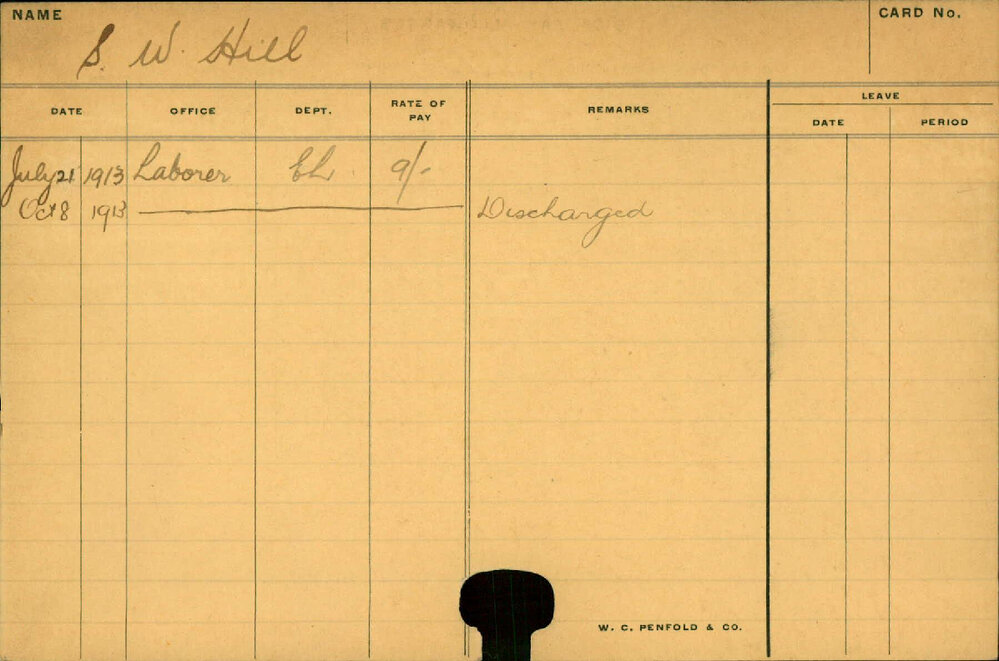 NAME
CARD No.
S. W. Hill
DATE OFFICE DEPT. RATE OF PAY REMARKS LEAVE
DATE PERIOD
July 21 1913 Laborer EL 9/-
Oct 8 1913 Discharged
W. C. PENFOLD & CO.